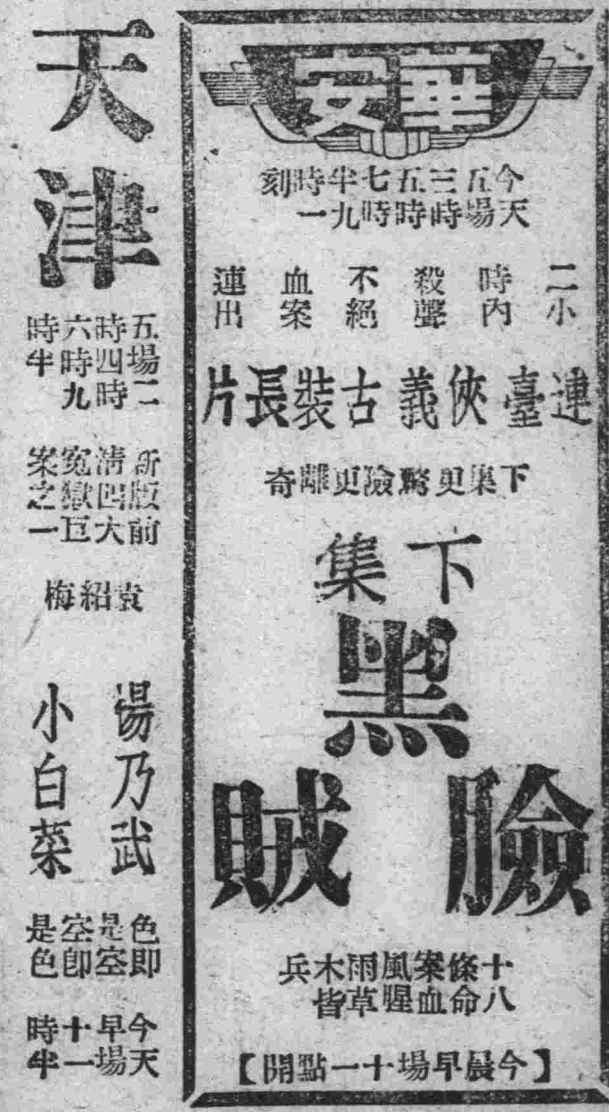 華安
今天五場三時五時七時半九時一刻
二小時內殺聲不絕血案連出
連臺俠義古裝長片
下集更驚險更離奇
下集
黑
臉賊
十八條命案血風腥雨草木皆兵
【今晨早場十一點開】
天津
五場二
時四時
六時九
時半
新版前
清四大
冤獄巨
案之一
袁紹梅
楊乃武
小白菜
色即
是空
空即
是色
今天
早場
十一
時半